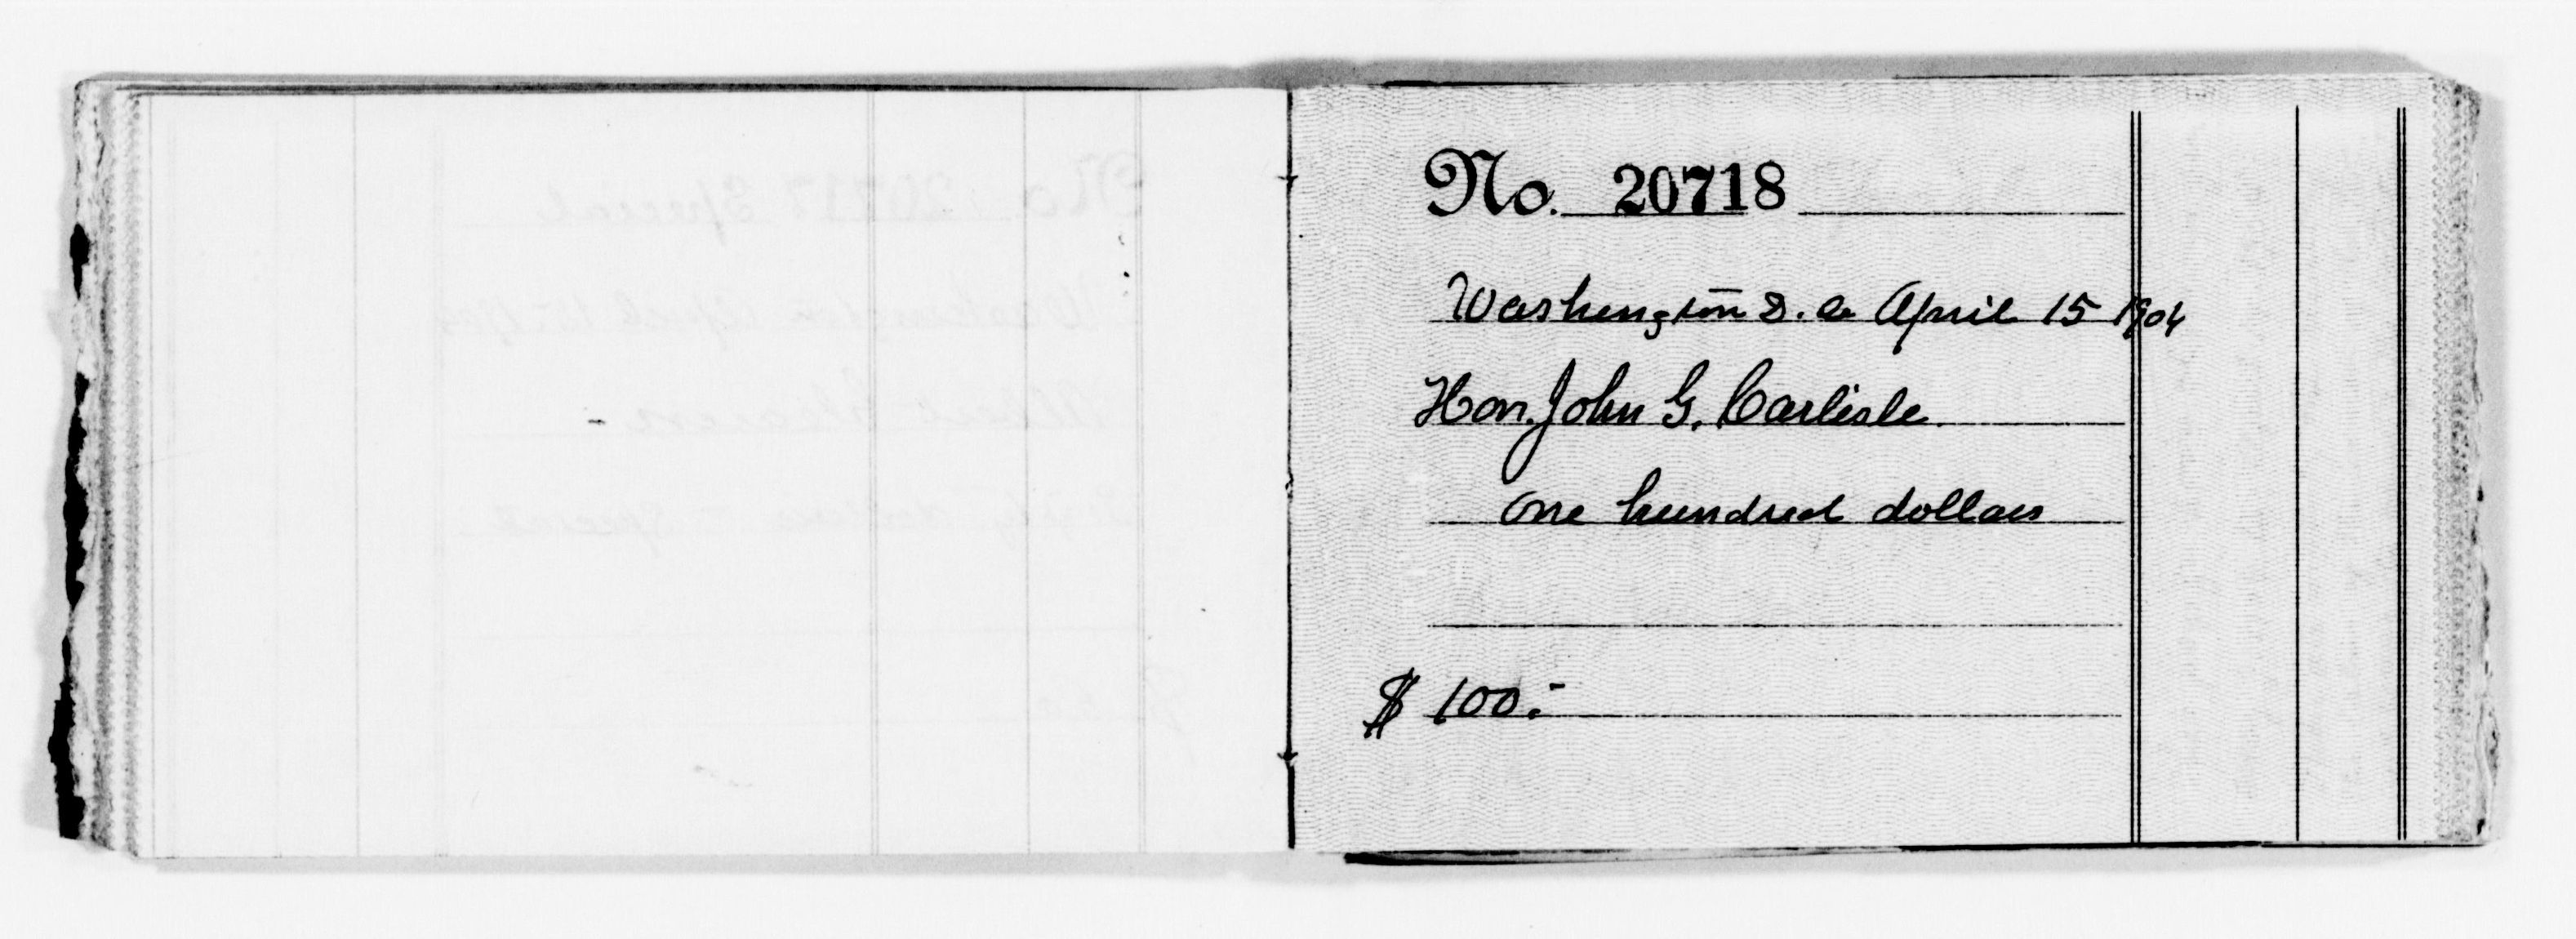 No. 20718
Washington D. C. April 15 1904
Hon. John G. Carlisle.
One hundred dollars
$ 100.-